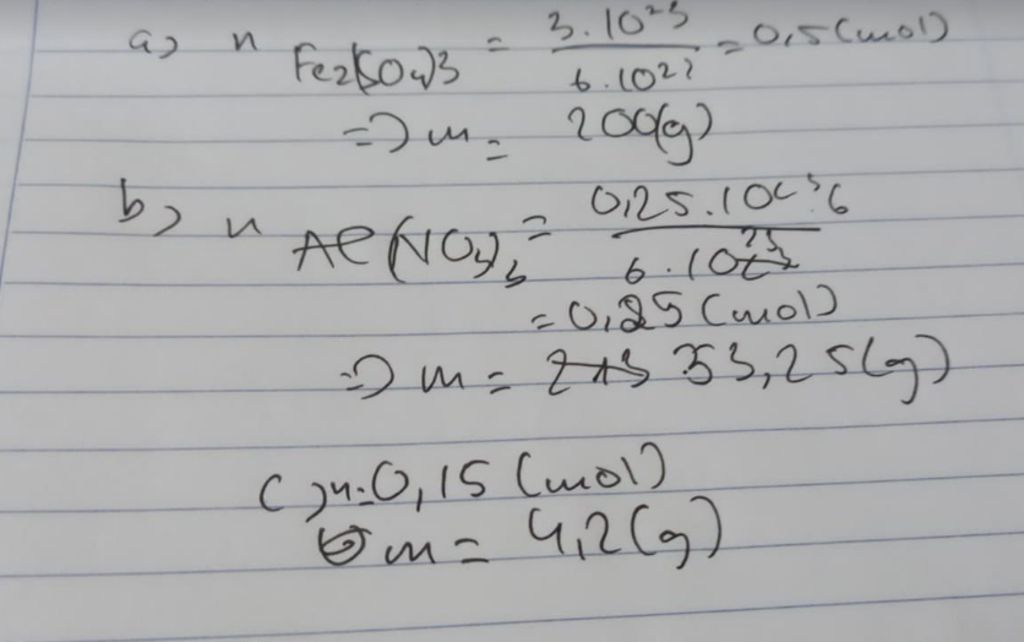 a) n Fe2(SO4)3 = 3.10²³ / 6.10²³ = 0,5 (mol)
=> m = 200(g)
b) n Al(NO3)3 = 0,25.10²³.6 / 6.10²³
= 0,25 (mol)
=> m = 53,25(g)
c) n = 0,15 (mol)
m = 4,2(g)